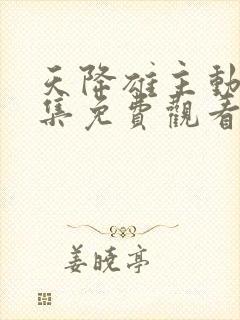 天降雄主動
集免費觀看
姜曉亭